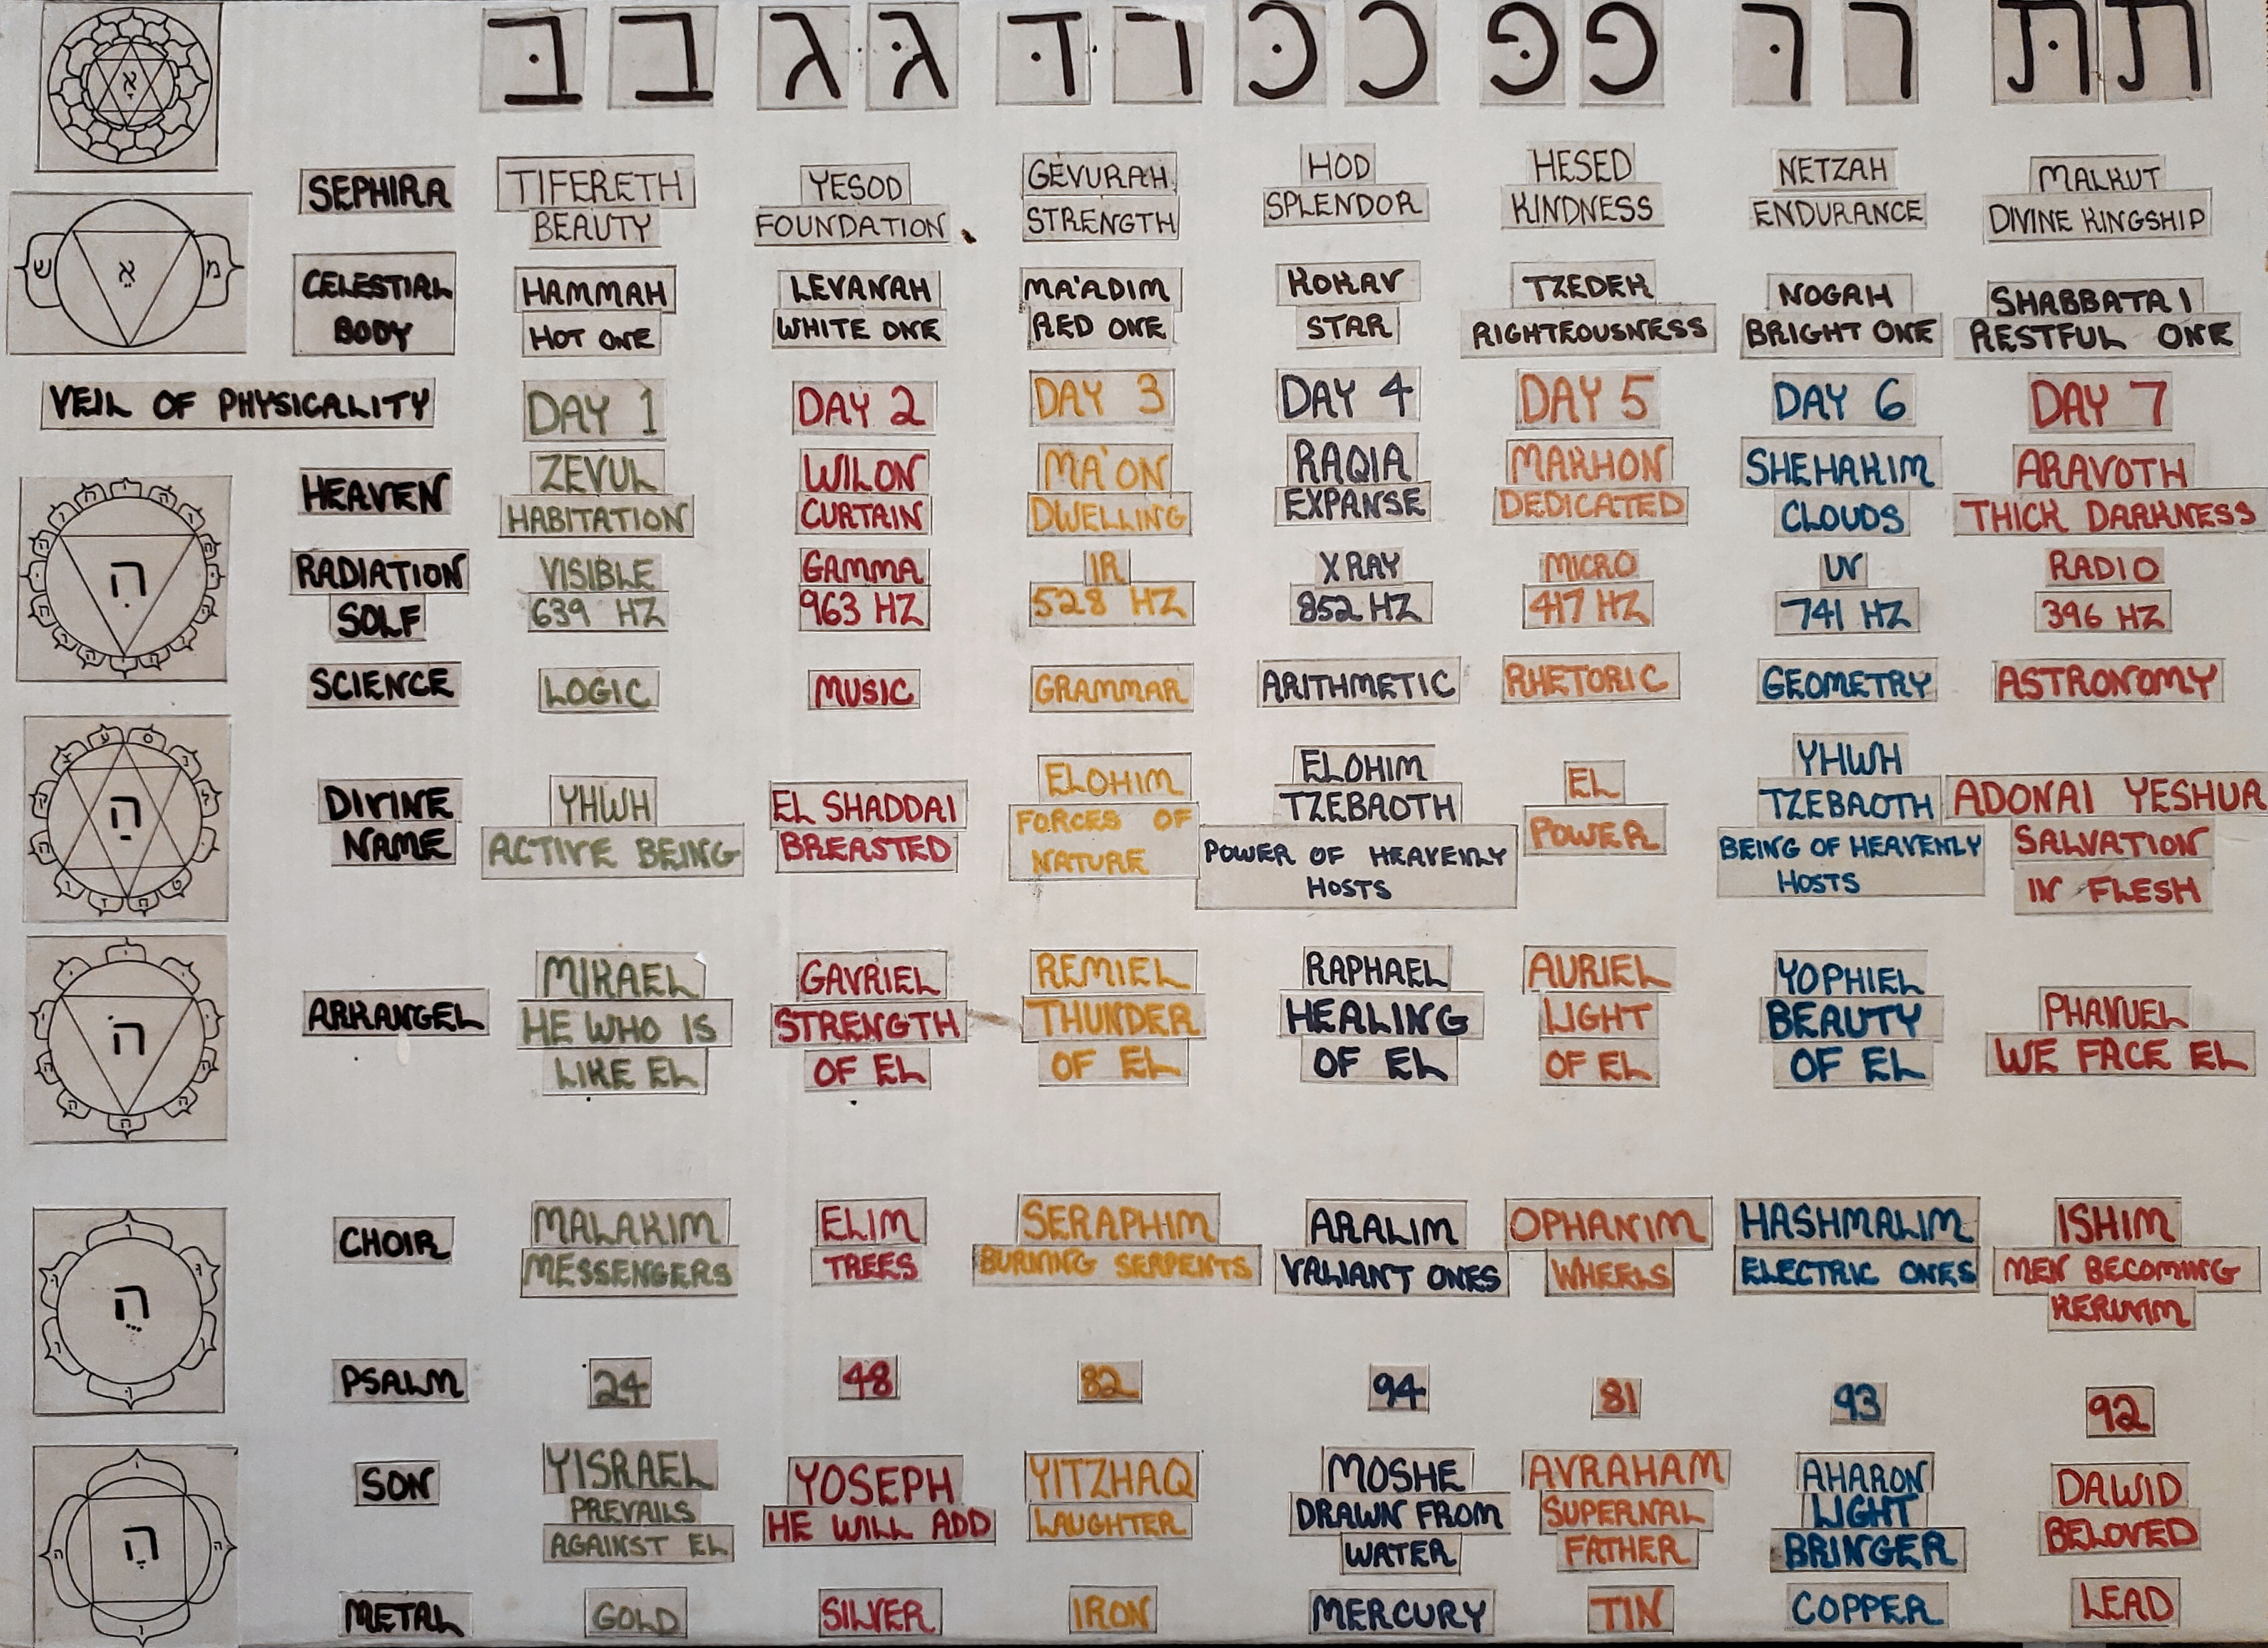 בּ ב ג גּ דּ ד כּ כ פּ פ רּ ר תּ ת
SEPHIRA
TIFERETH
BEAUTY
YESOD
FOUNDATION
GEVURAH
STRENGTH
HOD
SPLENDOR
HESED
KINDNESS
NETZAH
ENDURANCE
MALKUT
DIVINE KINGSHIP
CELESTIAL
BODY
HAMMAH
HOT ONE
LEVANAH
WHITE ONE
MA'ADIM
RED ONE
KOKAV
STAR
TZEDEK
RIGHTEOUSNESS
NOGAH
BRIGHT ONE
SHABBATAI
RESTFUL ONE
VEIL OF PHYSICALITY
DAY 1
DAY 2
DAY 3
DAY 4
DAY 5
DAY 6
DAY 7
HEAVEN
ZEVUL
HABITATION
WILON
CURTAIN
MA'ON
DWELLING
RAQIA
EXPANSE
MAKHON
DEDICATED
SHEHAKIM
CLOUDS
ARAVOTH
THICK DARKNESS
RADIATION
SOLF
VISIBLE
639 HZ
GAMMA
963 HZ
IR
528 HZ
X RAY
852 HZ
MICRO
417 HZ
UV
741 HZ
RADIO
396 HZ
SCIENCE
LOGIC
MUSIC
GRAMMAR
ARITHMETIC
RHETORIC
GEOMETRY
ASTRONOMY
DIVINE
NAME
YHWH
ACTIVE BEING
EL SHADDAI
BREASTED
ELOHIM
FORCES OF
NATURE
ELOHIM
TZEBAOTH
POWER OF HEAVENLY
HOSTS
EL
POWER
YHWH
TZEBAOTH
BEING OF HEAVENLY
HOSTS
ADONAI YESHUA
SALVATION
IN FLESH
ARKANGEL
MIKAEL
HE WHO IS
LIKE EL
GAVRIEL
STRENGTH
OF EL
REMIEL
THUNDER
OF EL
RAPHAEL
HEALING
OF EL
AURIEL
LIGHT
OF EL
YOPHIEL
BEAUTY
OF EL
PHANUEL
WE FACE EL
CHOIR
MALAKIM
MESSENGERS
ELIM
TREES
SERAPHIM
BURNING SERPENTS
ARALIM
VALIANT ONES
OPHANIM
WHEELS
HASHMALIM
ELECTRIC ONES
ISHIM
MEN BECOMING
KERUVIM
PSALM
24
48
82
94
81
93
92
SON
YISRAEL
PREVAILS
AGAINST EL
YOSEPH
HE WILL ADD
YITZHAQ
LAUGHTER
MOSHE
DRAWN FROM
WATER
AVRAHAM
SUPERNAL
FATHER
AHARON
LIGHT
BRINGER
DAWID
BELOVED
METAL
GOLD
SILVER
IRON
MERCURY
TIN
COPPER
LEAD